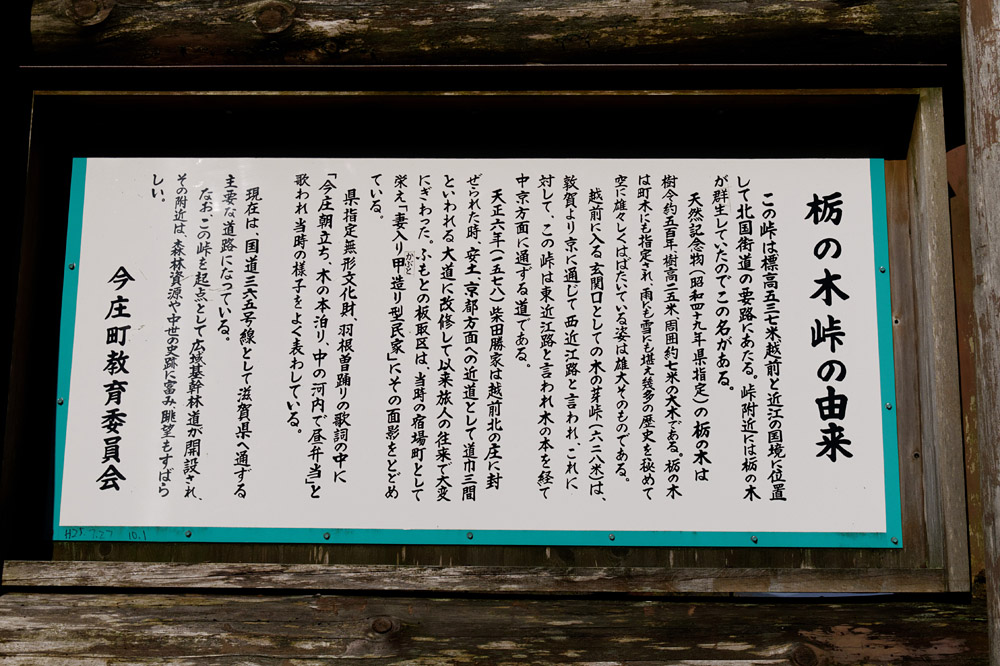 栃の木峠の由来
この峠は標高五三七米、越前と近江の国境に位置
して北国街道の要路にあたる。峠附近には栃の木
が群生していたのでこの名がある。
天然記念物(昭和四十九年県指定)の栃の木は
樹令約五百年、樹高二五米、周囲約七米の大木である。栃の木
は町木にも指定され、雨にも雪にも堪え幾多の歴史を秘めて
空に雄々しくはばたいている姿は雄大そのものである。
越前に入る玄関口としての木の芽峠(六二八米)は、
敦賀より京に通じて西近江路と言われ、これに
対して、この峠は東近江路と言われ木の本を経て
中京方面に通ずる道である。
天正六年(一五七八)柴田勝家は越前北の庄に封
ぜられた時、安土、京都方面への近道として道巾三間
といわれる大道に改修して以来旅人の往来で大変
にぎわった。ふもとの板取区は、当時の宿場町として
栄え「妻入り甲造り型民家」にその面影をとどめ
かぶと
ている。
県指定無形文化財、羽根曽踊りの歌詞の中に
「今庄朝立ち、木の本泊り、中の河内で昼弁当」と
歌われ当時の様子をよく表わしている。
現在は、国道三六五号線として滋賀県へ通ずる
主要な道路になっている。
なお、この峠を起点として広域基幹林道が開設され、
その附近は、森林資源や中世の史跡に富み眺望もすばら
しい。
今庄町教育委員会
H25.7.27 10.1